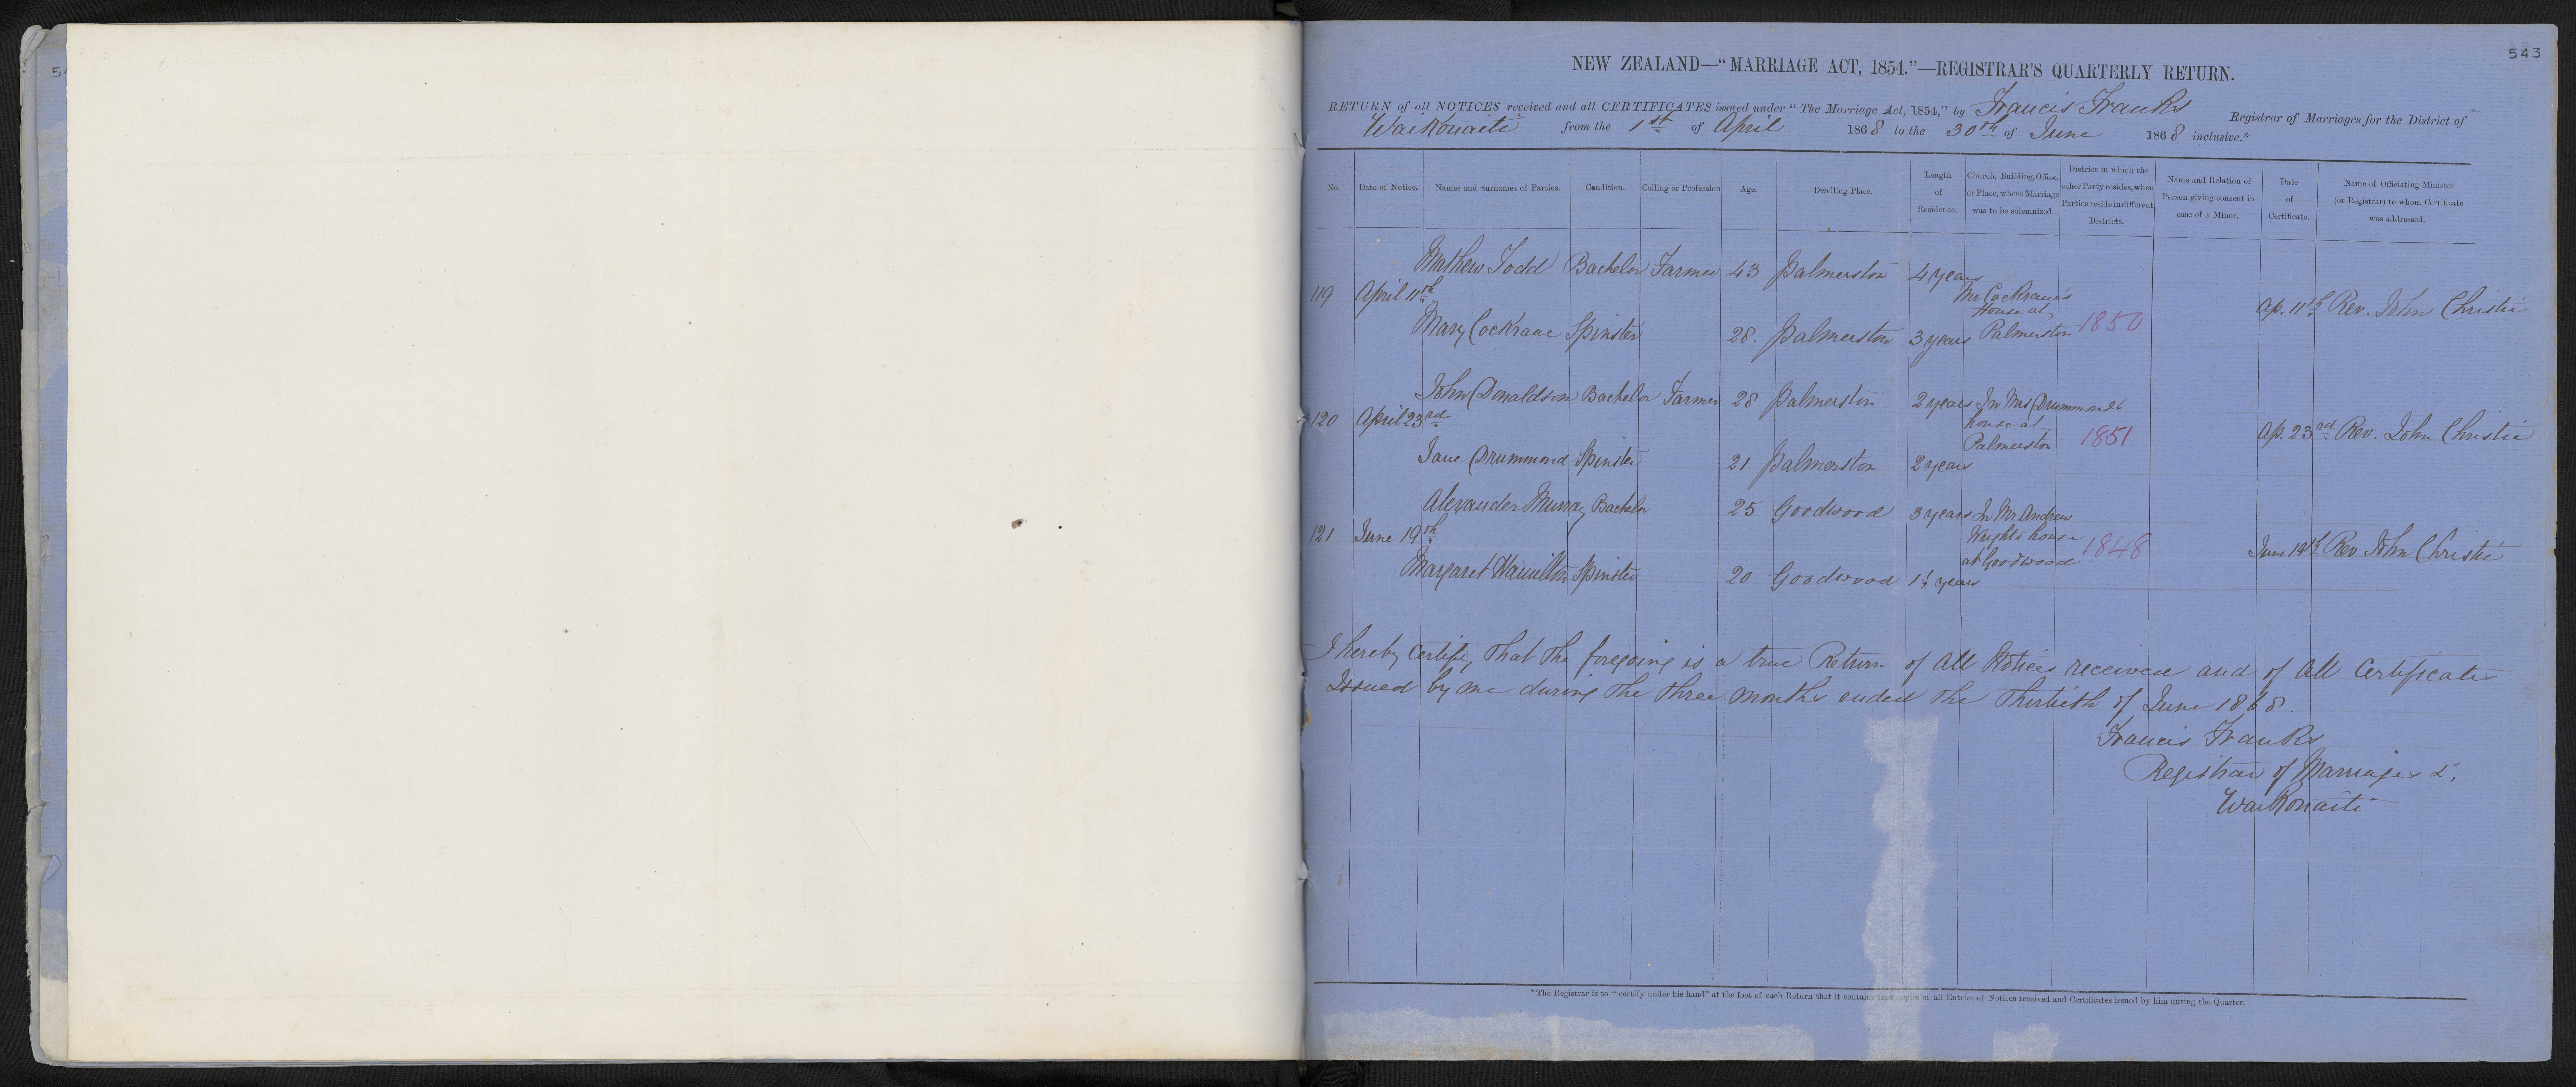 543
NEW ZEALAND—“MARRIAGE ACT, 1854.”—REGISTRAR'S QUARTERLY RETURN.
RETURN of all NOTICES received and all CERTIFICATES issued under “The Marriage Act, 1854,” by Francis Franks Registrar of Marriages for the District of
Waikouaiti from the 1st of April 1868 to the 30th of June 1868 inclusive.*
No. Date of Notice. Names and Surnames of Parties. Condition. Calling or Profession Age. Dwelling Place. Length of Residence. Church, Building, Office, or Place, where Marriage was to be solemnized. District in which the other Party resides, when Parties reside in different Districts. Name and Relation of Person giving consent in case of a Minor. Date of Certificate. Name of Officiating Minister (or Registrar) to whom Certificate was addressed.
Mathew Todd Bachelor Farmer 43 Palmerston 4 years
119 April 11th Mr Cockrane's House at Palmerston 1850 Ap. 11th Rev. John Christie
Mary Cockrane Spinster 28. Palmerston 3 years
John Donaldson Bachelor Farmer 28 Palmerston 2 years
120 April 23rd In Mrs Drummond's house at Palmerston 1851 Ap. 23rd Rev. John Christie
Jane Drummond Spinster 21 Palmerston 2 years
Alexander Murray Bachelor 25 Goodwood 3 years
121 June 19th In Mr Andrew Wrights house at Goodwood 1848 June 19th Rev John Christie
Margaret Hamilton Spinster 20 Goodwood 1½ years
I hereby certify, that the foregoing is a true Return of all Notices received and of all Certificates
Issued by me during the three months ended the Thirtieth of June 1868.
Francis Franks
Registrar of Marriages &.
Waikouaiti
*The Registrar is to “certify under his hand” at the foot of each Return that it contains true copies of all Entries of Notices received and Certificates issued by him during the Quarter.